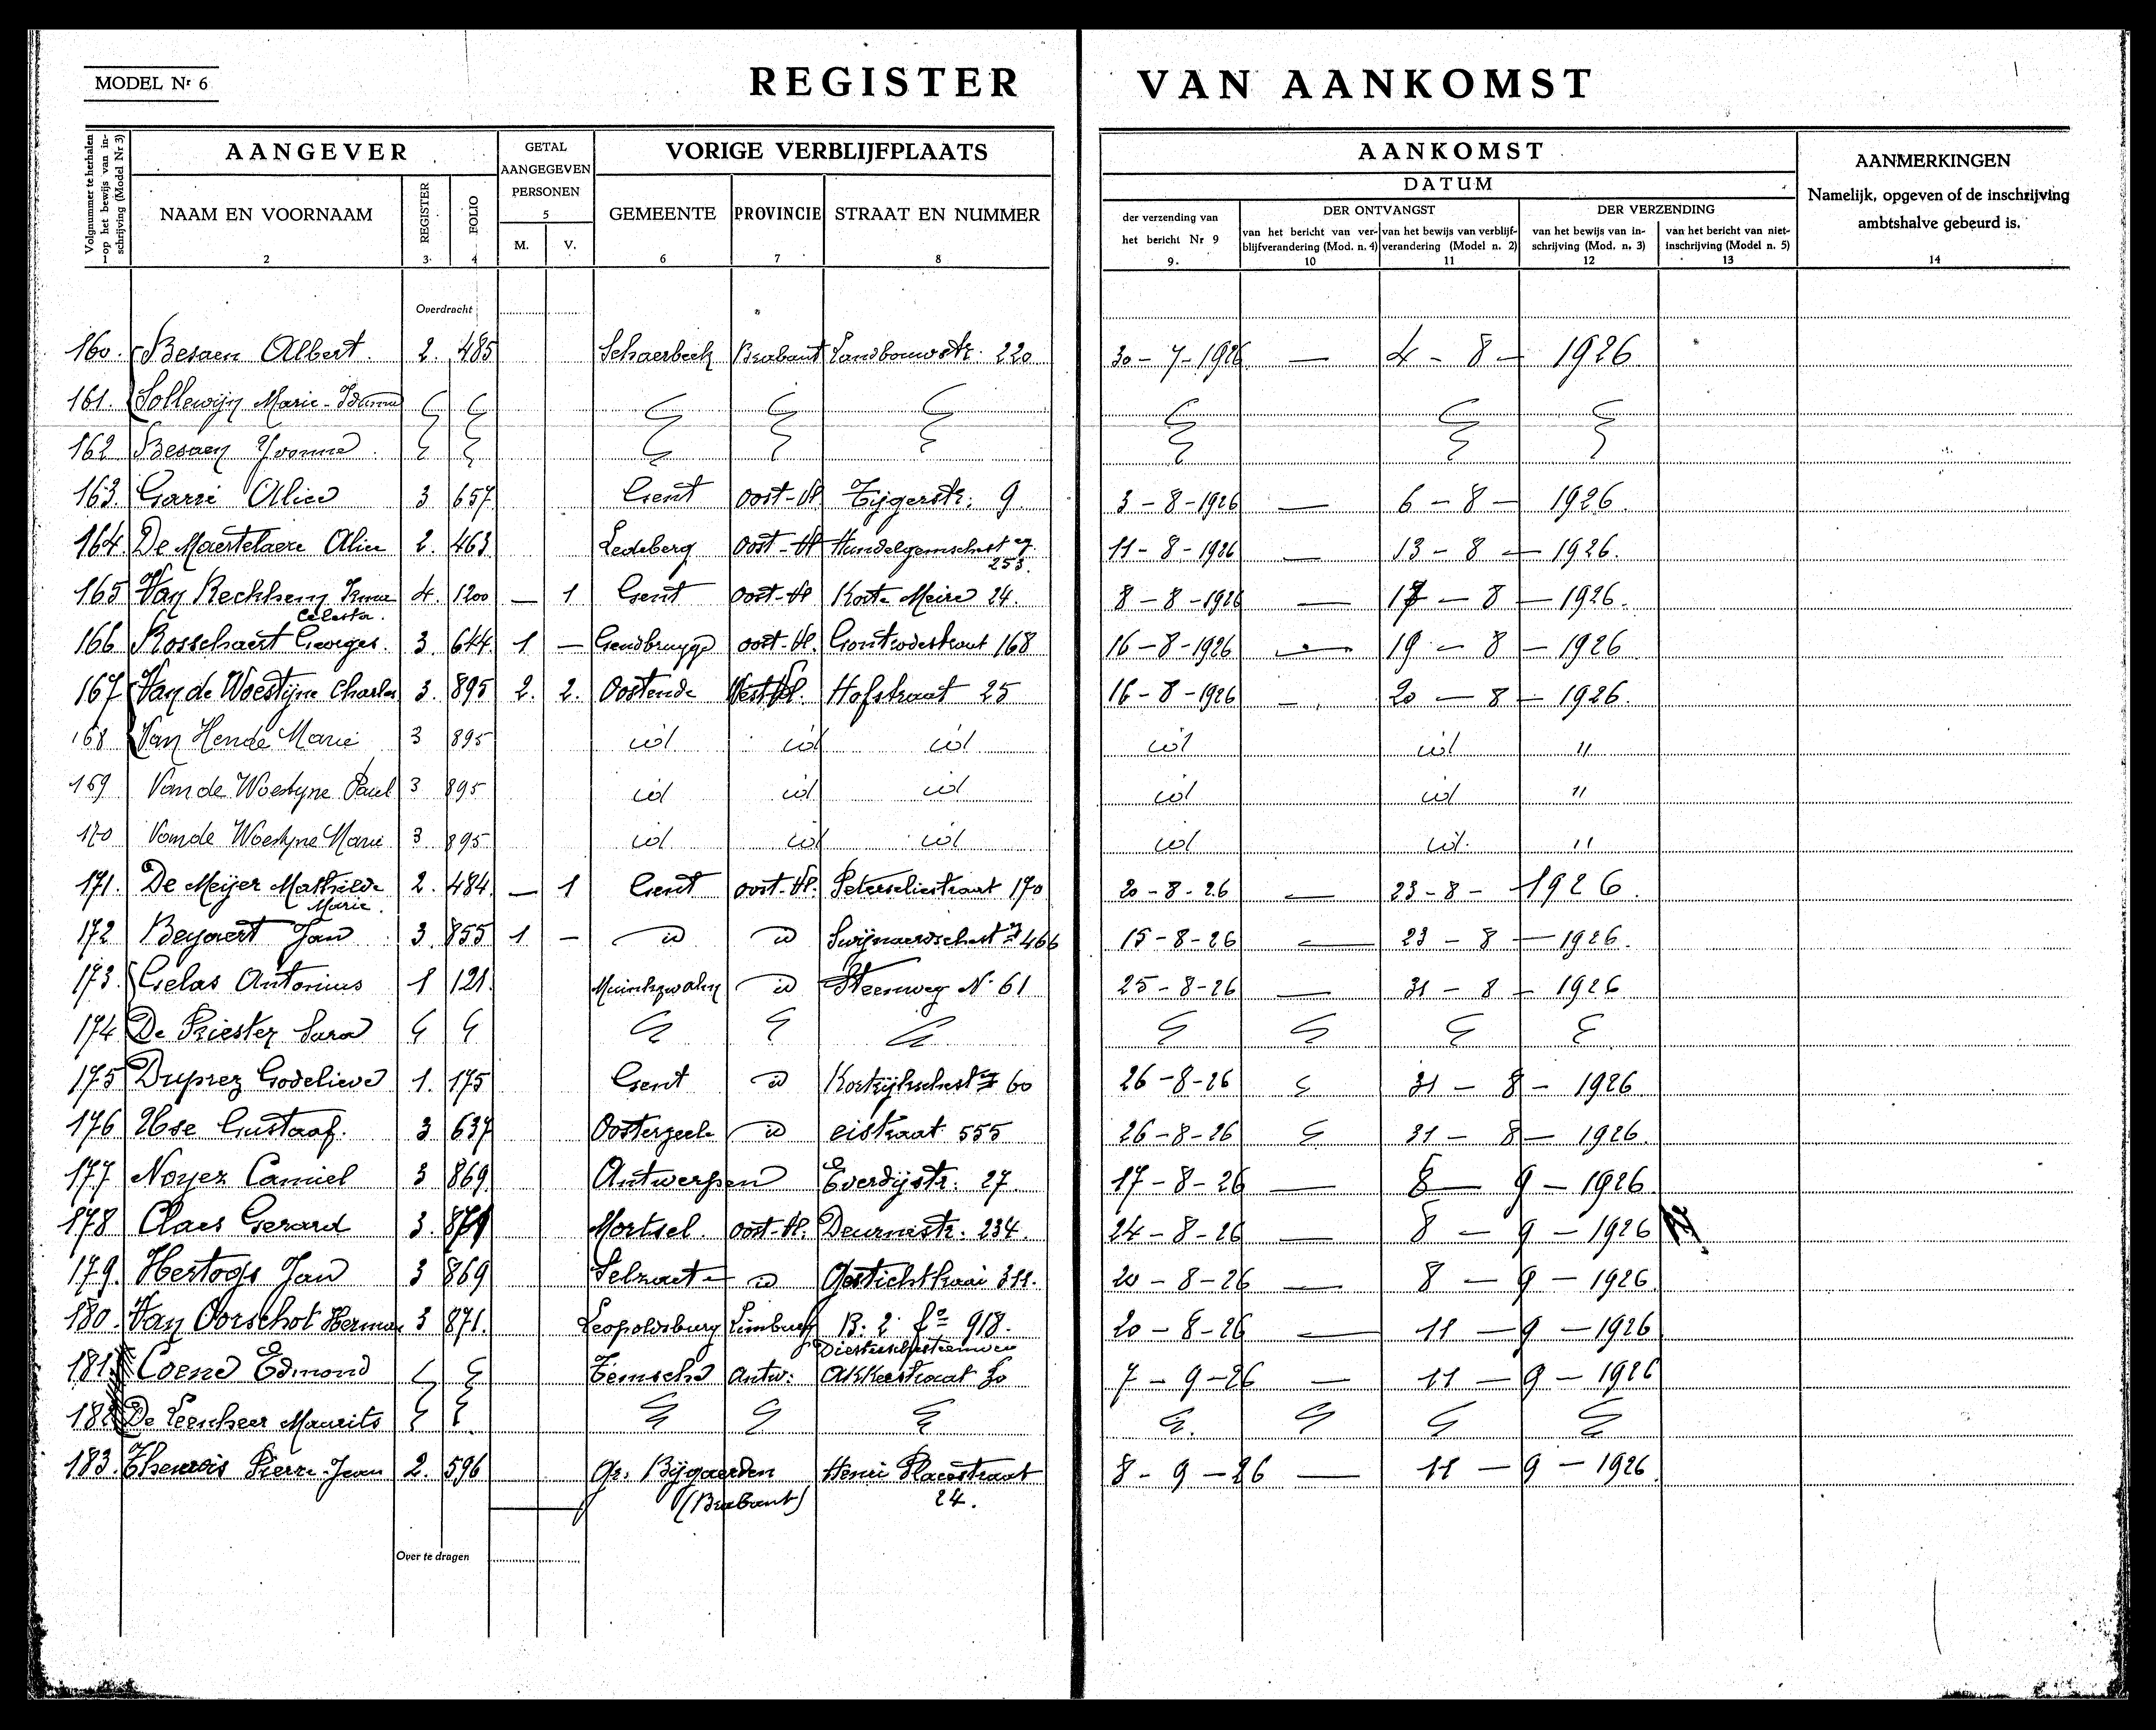 MODEL Nr 6
REGISTER VAN AANKOMST
Volgnummer te herhalen op het bewijs van inschrijving (Model Nr 3)
AANGEVER
GETAL AANGEGEVEN PERSONEN
VORIGE VERBLIJFPLAATS
AANKOMST
DATUM
AANMERKINGEN
Namelijk, opgeven of de inschrijving ambtshalve gebeurd is.
NAAM EN VOORNAAM REGISTER FOLIO M. V. GEMEENTE PROVINCIE STRAAT EN NUMMER
der verzending van het bericht Nr 9
DER ONTVANGST
van het bericht van verblijfverandering (Mod. n. 4) van het bewijs van verblijfverandering (Model n. 2)
DER VERZENDING
van het bewijs van inschrijving (Mod. n. 3) van het bericht van niet-inschrijving (Model n. 5)
1 2 3 4 5 6 7 8 9 10 11 12 13 14
Overdracht
160. Besaen Albert. 2. 485 Schaerbeek Brabant Landbouwstr. 220 30-7-1926 — 4 - 8 - 1926
161. Sollewijn Marie-
162 Besaen Yvonne
163. Garré Alice 3 657 Gent Oost-Vl Tijgerstr. 9 3-8-1926 — 6 - 8 - 1926
164. De Maertelaere Alice 2. 463 Ledeberg Oost-Vl Hundelgemschest eg. 253. 11-8-1926 — 13 - 8 - 1926.
165 Van Rechhem Irma Celesta. 4. 1200 — 1 Gent Oost-Vl Korte Meire 24. 8-8-1926 — 17 - 8 - 1926.
166 Rosschaert Georges. 3. 644 1 — Gendbrugge oost-Vl. Gontrodestraat 168 16-8-1926 — 19 - 8 - 1926
167 Van de Woestijne Charles 3. 895 2. 2. Oostende West Vl. Hofstraat 25 16-8-1926 — 20 - 8 - 1926.
168 Van Hende Marie 3 895 id id id id id "
169 Van de Woestyne Paul 3 895 id id id id id "
170 Van de Woestyne Marie 3 895 id id id id id. "
171. De Meijer Mathilde Marie. 2. 484 — 1 Gent oost-Vl. Peterseliestraat 170 20-8-26 — 23-8-1926.
172 Beyaert Jan 3. 855 1 — id id Swijnaerdschest 466 15-8-26 — 23 - 8 - 1926.
173. Gelas Antonius 1 121. id Steenweg N. 61 25-8-26 — 31 - 8 - 1926
174 De Priester Sara
175 Duprez Godelieve 1. 175 Gent id Kortrijkschest 60 26-8-26 31 - 8 - 1926
176 Gustaaf. 3 637 Oosterzeele id eistraat 555 26-8-26 31 - 8 - 1926.
177 Noyez Camiel 3 869 Antwerpen Everdijstr. 27. 17-8-26 — 8 - 9 - 1926
178 Claes Gerard 3. Mortsel. oost-Vl. Deurnestr. 234. 24-8-26 — 8 - 9 - 1926
179. Hertogs Jan 3 869 Selzaete id Gestichtkaai 311. 20-8-26 — 8 - 9 - 1926.
180. Van Oorschot Herman 3 871. Leopoldsburg Limburg B. 2 fo 918. 20-8-26 — 11 - 9 - 1926
181. Coene Edmond Temsche Antw: Akkerstraat 30 7-9-26 — 11 - 9 - 1926
182 De Leenheer Maurits
183. Pierre-Jean 2. 596 Gr. Bijgaerden (Brabant) Henri Placestraat 24. 8-9-26 — 11 - 9 - 1926
Over te dragen